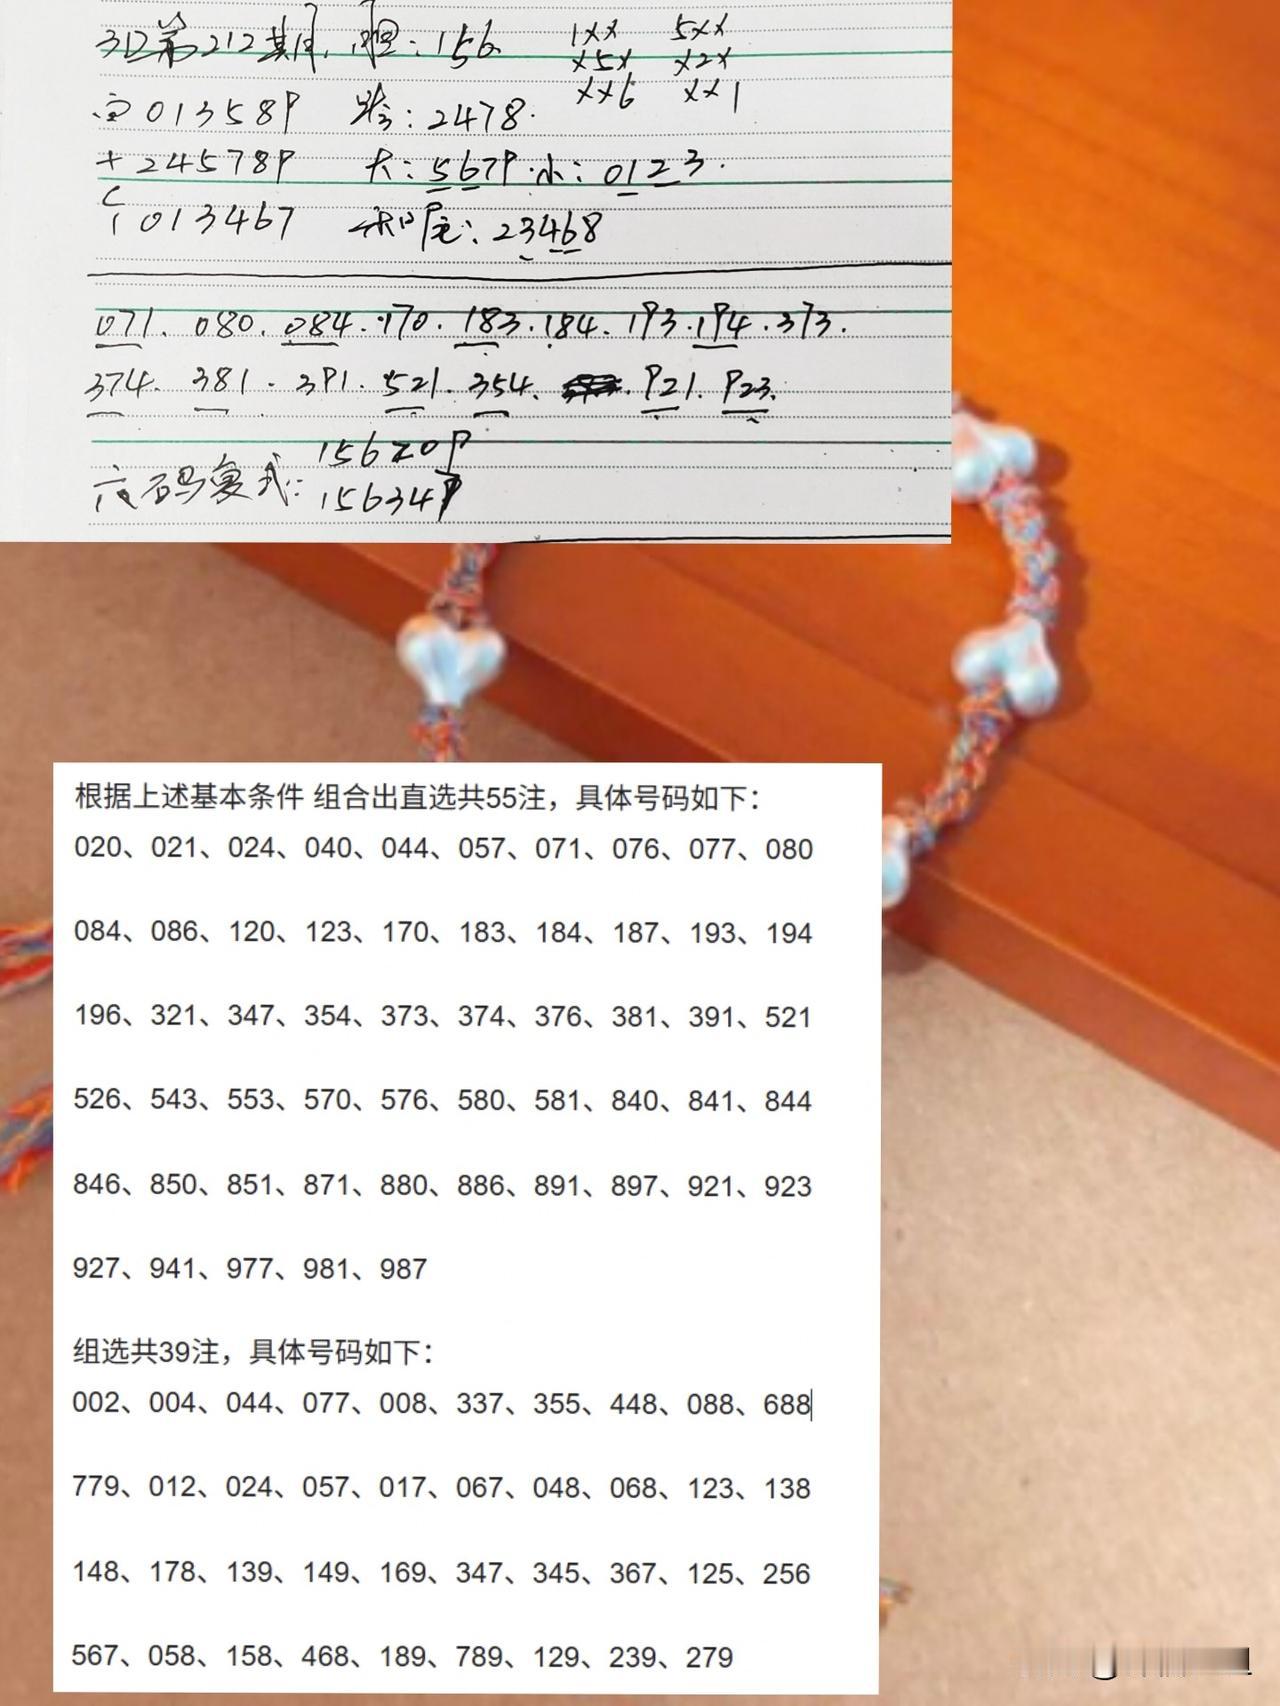 3D第212期, 胆: 156 1XX 5XX
X5X X2X
百013589 跨: 2478. XX6 XX1
十245789 大: 5679. 小: 0123.
个013467 和尾: 23468
071. 080. 084. 170. 183. 184. 193. 194. 373.
374. 381. 391. 521. 354. 921. 923.
156209
六码复式:
156349
根据上述基本条件 组合出直选共55注，具体号码如下：
020、021、024、040、044、057、071、076、077、080
084、086、120、123、170、183、184、187、193、194
196、321、347、354、373、374、376、381、391、521
526、543、553、570、576、580、581、840、841、844
846、850、851、871、880、886、891、897、921、923
927、941、977、981、987
组选共39注，具体号码如下：
002、004、044、077、008、337、355、448、088、688
779、012、024、057、017、067、048、068、123、138
148、178、139、149、169、347、345、367、125、256
567、058、158、468、189、789、129、239、279